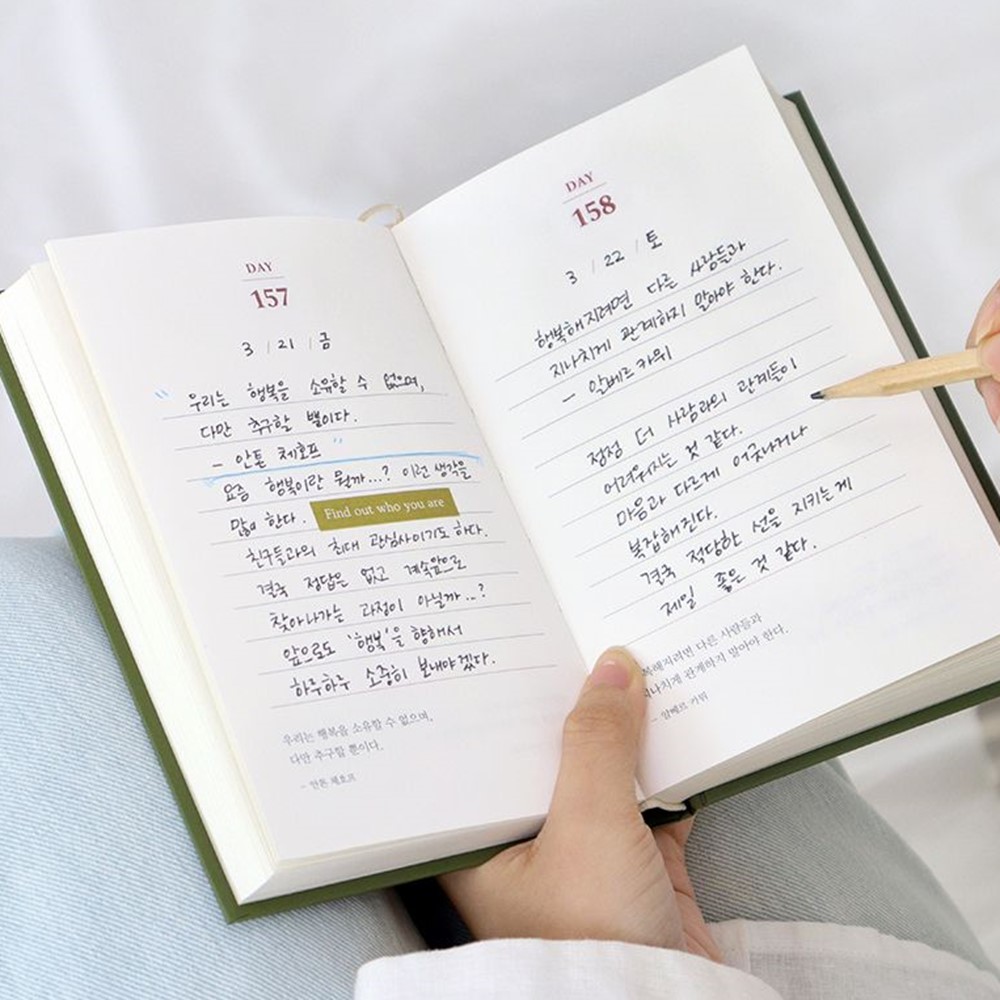 DAY
157
3 / 21 / 금
" 우리는 행복을 소유할 수 없으며,
다만 추구할 뿐이다.
- 안톤 체호프 "
요즘 행복이란 뭘까...? 이런 생각을
많이 한다. Find out who you are
친구들과의 최대 관심사이기도 하다.
결국 정답은 없고 계속앞으로
찾아나가는 과정이 아닐까...?
앞으로도 '행복'을 향해서
하루하루 소중히 보내야겠다.
우리는 행복을 소유할 수 없으며,
다만 추구할 뿐이다.
- 안톤 체호프
DAY
158
3 / 22 / 토
행복해지려면 다른 사람들과
지나치게 관계하지 말아야 한다.
- 알베르 카뮈
점점 더 사람과의 관계들이
어려워지는 것 같다.
마음과 다르게 어긋나거나
복잡해진다.
결국 적당한 선을 지키는게
제일 좋은 것 같다.
복해지려면 다른 사람들과
지나치게 관계하지 말아야 한다.
- 알베르 카뮈